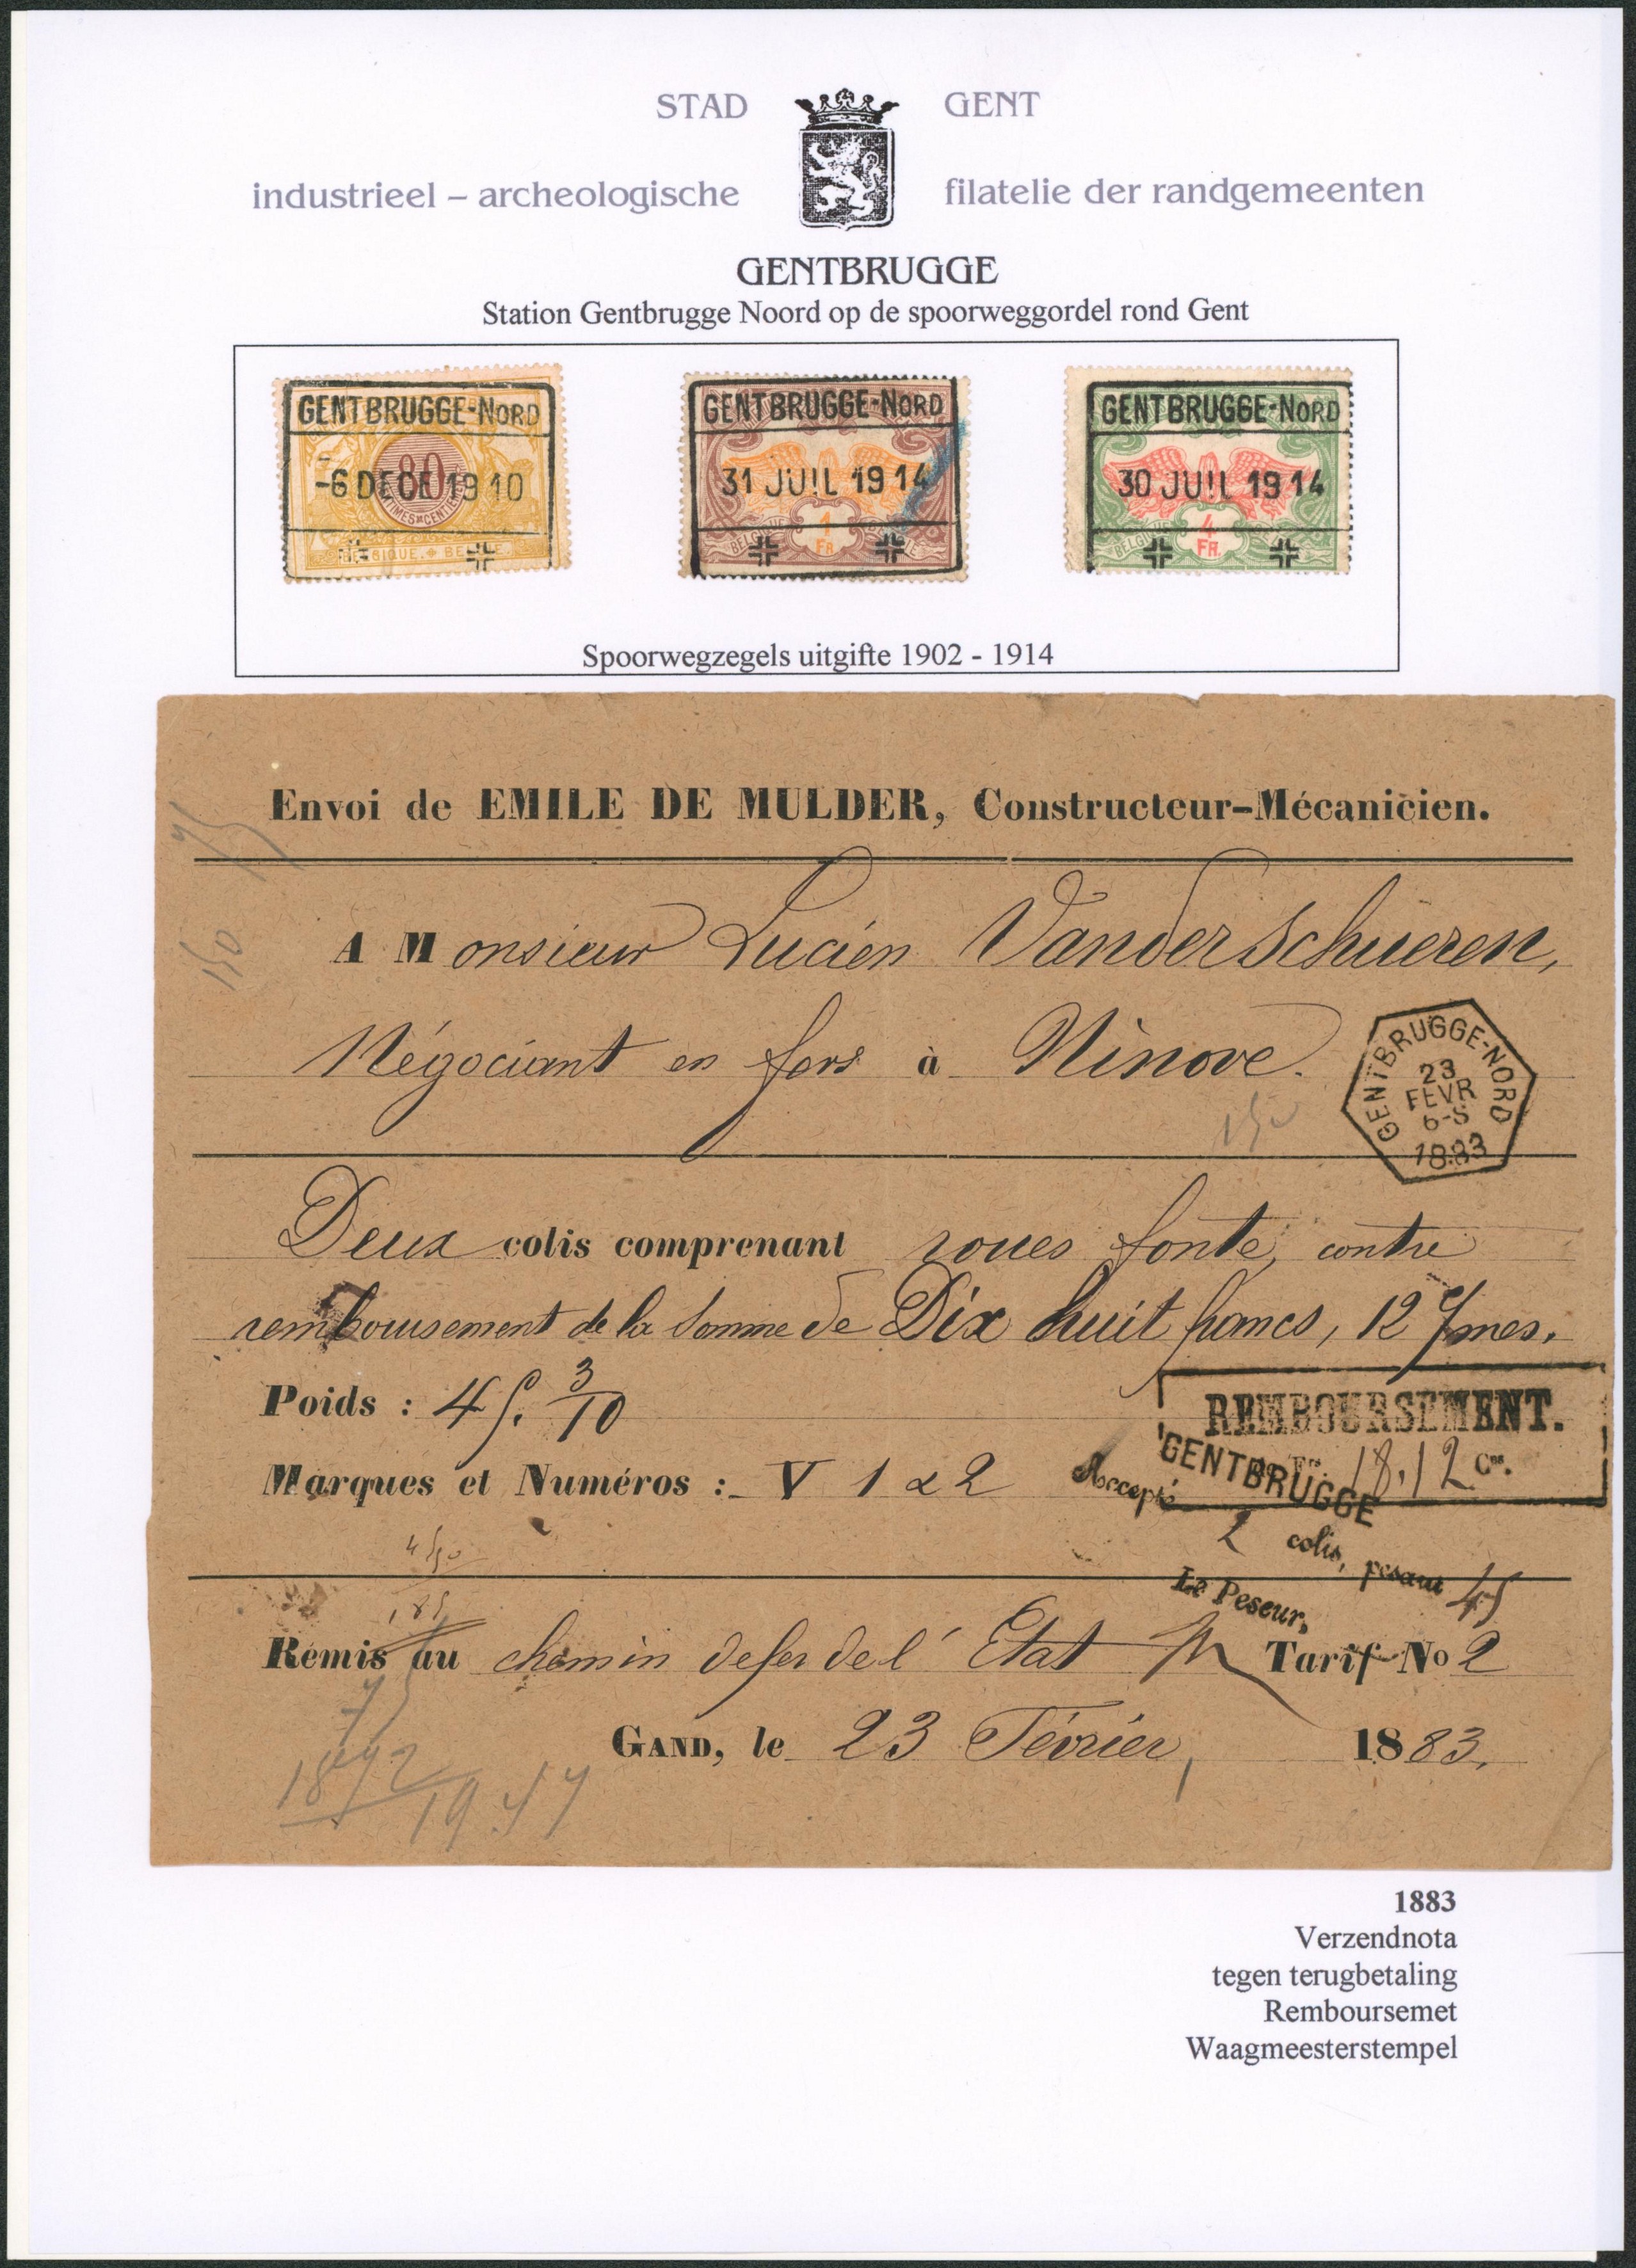 STAD GENT
industrieel – archeologische filatelie der randgemeenten
GENTBRUGGE
Station Gentbrugge Noord op de spoorweggordel rond Gent
GENTBRUGGE-NORD
-6 DECE 1910
80
GENTBRUGGE-NORD
31 JUIL 1914
1
FR
GENTBRUGGE-NORD
30 JUIL 1914
4
FR.
Spoorwegzegels uitgifte 1902 - 1914
Envoi de EMILE DE MULDER, Constructeur-Mécanicien.
A Monsieur Lucien Vanderschueren,
Négociant en fers à Ninove.
GENTBRUGGE-NORD
23
FEVR
6-S
1883
Deux colis comprenant roues fonte, contre
remboursement de la somme de Dix huit francs, 12
Poids : 45. 3/10
REMBOURSEMENT.
Fr. 18.12 Cs.
Marques et Numéros : V 1 à 2
GENTBRUGGE
Accepté 2 colis, pesant 45
Le Peseur,
Remis au chemin de fer de l'Etat Tarif No 2
GAND, le 23 Février, 1883.
1883
Verzendnota
tegen terugbetaling
Remboursemet
Waagmeesterstempel